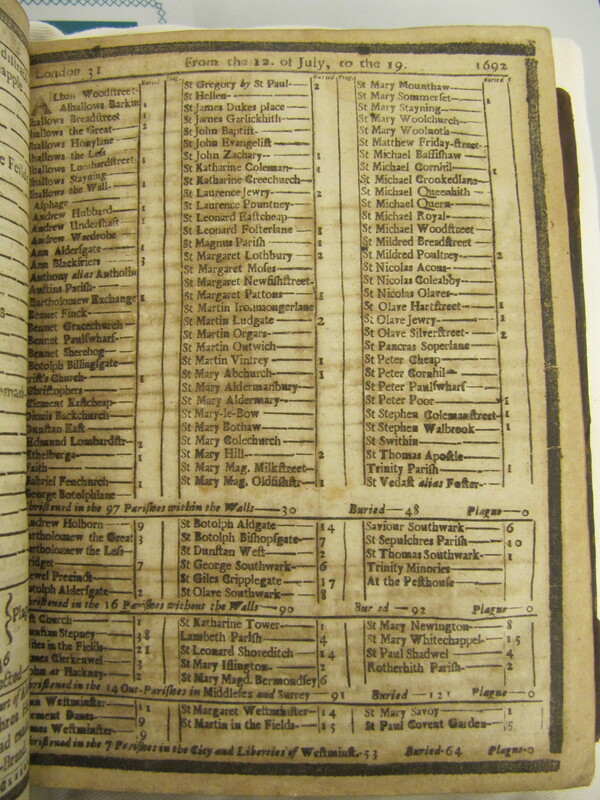 London 31 From the 12. of July, to the 19. 1692
Buried Plag.
Alban Woodstreet
Alhallows Barkin 1
hallows Breadstreet 1
hallows the Great 2
hallows Honylane
hallows the Less
hallows Lombardstreet 1
hallows Stayning 1
hallows the Wall 1
Alphage
Andrew Hubbard 1
Andrew Undershaft 1
Andrew Wardrobe
Ann Aldersgate 1
Ann Blackfriers 3
Anthony alias Antholin
Austins Parish
Bartholomew Exchange 1
Bennet Finck
Bennet Gracechurch
Bennet Paulswharf
Bennet Sherehog
Botolph Billingsgate
rist's Church 1
Christophers
Clement Eastcheap
Dionis Backchurch
Dunstan East
Edmund Lombardstr 2
Ethelburga 1
Faith
Gabriel Fenchurch 1
George Botolphlane
Buried Plag.
St Gregory by St Paul 2
St Hellen
St James Dukes place
St James Garlickhith
St John Baptist
St John Evangelist
St John Zachary 1
St Katharine Coleman 1
St Katharine Creechurch
St Laurence Jewry 2
St Laurence Pountney
St Leonard Eastcheap
St Leonard Fosterlane 1
St Magnus Parish 1
St Margaret Lothbury 2
St Margaret Moses
St Margaret Newfishstreet
St Margaret Pattons 1
St Martin Ironmongerlane
St Martin Ludgate 2
St Martin Orgars
St Martin Outwich
St Martin Vintrey 1
St Mary Abchurch 1
St Mary Aldermanbury
St Mary Aldermary
St Mary-le-Bow
St Mary Bothaw
St Mary Colechurch
St Mary Hill 2
St Mary Mag. Milkstreet
St Mary Mag. Oldfishstr 1
Buried
St Mary Mounthaw
St Mary Sommerset 1
St Mary Stayning
St Mary Woolchurch
St Mary Woolnoth
St Matthew Friday-street
St Michael Bassishaw
St Michael Cornhil 1
St Michael Crookedlane
St Michael Queenhith
St Michael Quern
St Michael Royal
St Michael Woodstreet
St Mildred Breadstreet
St Mildred Poultrey 2
St Nicolas Acons
St Nicolas Coleabby
St Nicolas Olaves
St Olave Hartstreet 1
St Olave Jewry 1
St Olave Silverstreet 2
St Pancras Soperlane
St Peter Cheap
St Peter Cornhil
St Peter Paulswharf
St Peter Poor 1
St Stephen Colemanstreet 1
St Stephen Walbrook 1
St Swithin
St Thomas Apostle
Trinity Parish 1
St Vedast alias Foster
hristened in the 97 Parishes within the Walls 30 Buried 48 Plague 0
Andrew Holborn 9
artholomew the Great 3
artholomew the Less
ridget 7
ewel Precinct
otolph Aldersgate 2
St Botolph Aldgate 14
St Botolph Bishopsgate 7
St Dunstan West 2
St George Southwark 6
St Giles Cripplegate 17
St Olave Southwark 8
Saviour Southwark 6
St Sepulchres Parish 10
St Thomas Southwark 1
Trinity Minories
At the Pesthouse
hristened in the 16 Parishes without the Walls 90 Buried 92 Plague 0
st Church 1
unstan Stepney 38
iles in the Fields 21
ames Clerkenwel 3
ohn at Hackney 2
St Katharine Tower 1
Lambeth Parish 4
St Leonard Shoreditch 14
St Mary Islington 2
St Mary Magd. Bermondsey 6
St Mary Newington 8
St Mary Whitechappel 15
St Paul Shadwel 4
Rotherhith Parish 2
hristened in the 14 Out-Parishes in Middlesex and Surrey 91 Buried 121 Plague 0
Westminster 11
ement Danes 9
ames Westminster 9
St Margaret Westminster 14
St Martin in the Fields 15
St Mary Savoy 1
St Paul Covent Garden 5
hristened in the 7 Parishes in the City and Liberties of Westminst. 53 Buried 64 Plague 0